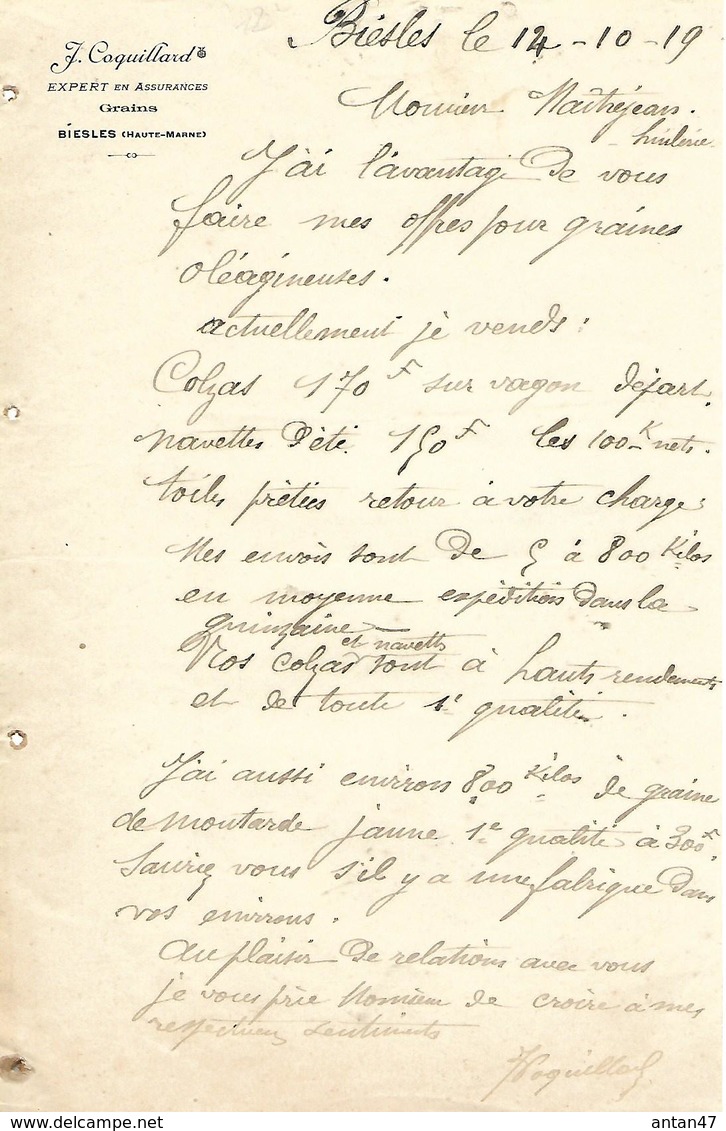 J. Coquillard
EXPERT EN ASSURANCES
Grains
BIESLES (HAUTE-MARNE)
Biesles le 12-10-19
Monsieur Maîtrejean.
huilerie
J'ai l'avantage De vous
faire mes offres pour graines
oléagineuses.
actuellement je vends :
Colzas 170 F sur vagon départ.
navettes D'été 150 F les 100 K nets.
toiles prêtées retour à votre charge
Mes envois sont De 5 à 800 Kilos
en moyenne expéditions Dans la
quinzaine
et navettes
Nos colzas sont à hauts rendements
et de toute 1e qualité.
J'ai aussi environ 800 Kilos de graine
de moutarde jaune 1e qualité à 300 F.
Sauriez vous s'il y a une fabrique Dans
vos environs.
Au plaisir De relations avec vous
je vous prie Monsieur de croire à mes
respectueux sentiments
JCoquillard
antan47